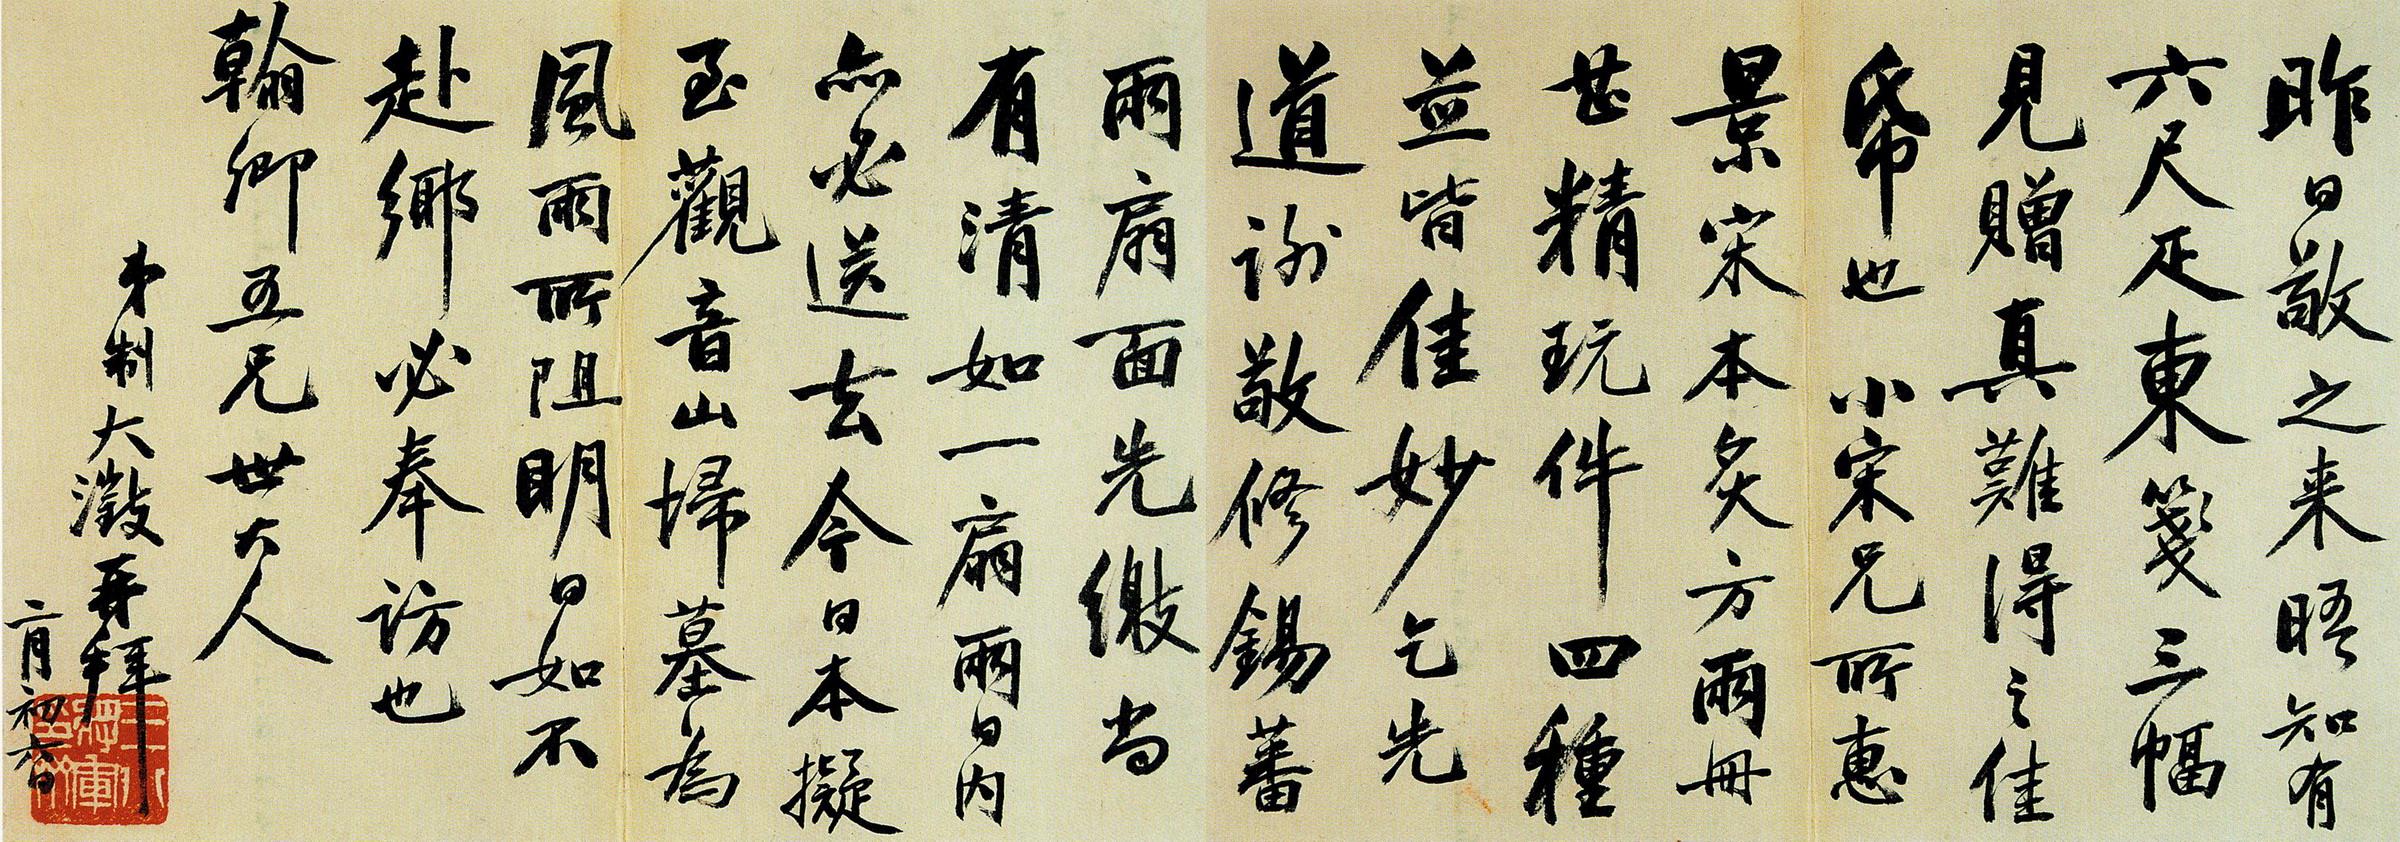 昨日敬之来晤知有
六尺疋東箋三幅
見贈真難得之佳
帋也小宋兄所惠
景宋本炙方兩冊
甚精玩件四種
並皆佳妙乞先
道謝敬修錫蕃
兩扇面先繳尚
有清如一扇兩日内
亦必送去今日本擬
至觀音山埽墓為
風雨所阻明日如不
赴鄉必奉訪也
翰卿五兄世大人
弟制大澂再拜
二月初六日